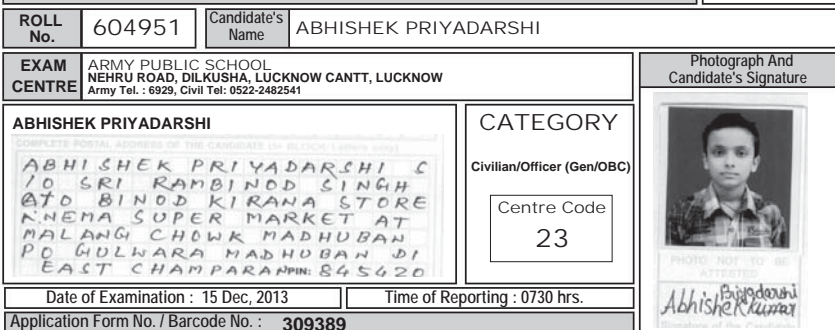 ROLL No. 604951 Candidate's Name ABHISHEK PRIYADARSHI
EXAM CENTRE ARMY PUBLIC SCHOOL
NEHRU ROAD, DILKUSHA, LUCKNOW CANTT, LUCKNOW
Army Tel. : 6929, Civil Tel: 0522-2482541
Photograph And
Candidate's Signature
ABHISHEK PRIYADARSHI
COMPLETE POSTAL ADDRESS OF THE CANDIDATE (in BLOCK Letters only)
ABHISHEK PRIYADARSHI S
/O SRI RAMBINOD SINGH
AT0 BINOD KIRANA STORE
NEMA SUPER MARKET AT
MALANG CHOWK MADHUBAN
PO GULWARA MADHUBAN DI
EAST CHAMPARAN PIN: 845420
CATEGORY
Civilian/Officer (Gen/OBC)
Centre Code
23
PHOTO NOT TO BE
ATTESTED
Priyadarshi
Abhishek Kumar
Signature of the Candidate
Date of Examination : 15 Dec, 2013 Time of Reporting : 0730 hrs.
Application Form No. / Barcode No. : 309389